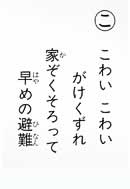 こ
こわい こわい
がけくずれ
家ぞくそろって
か
早めの避難
はや ひなん